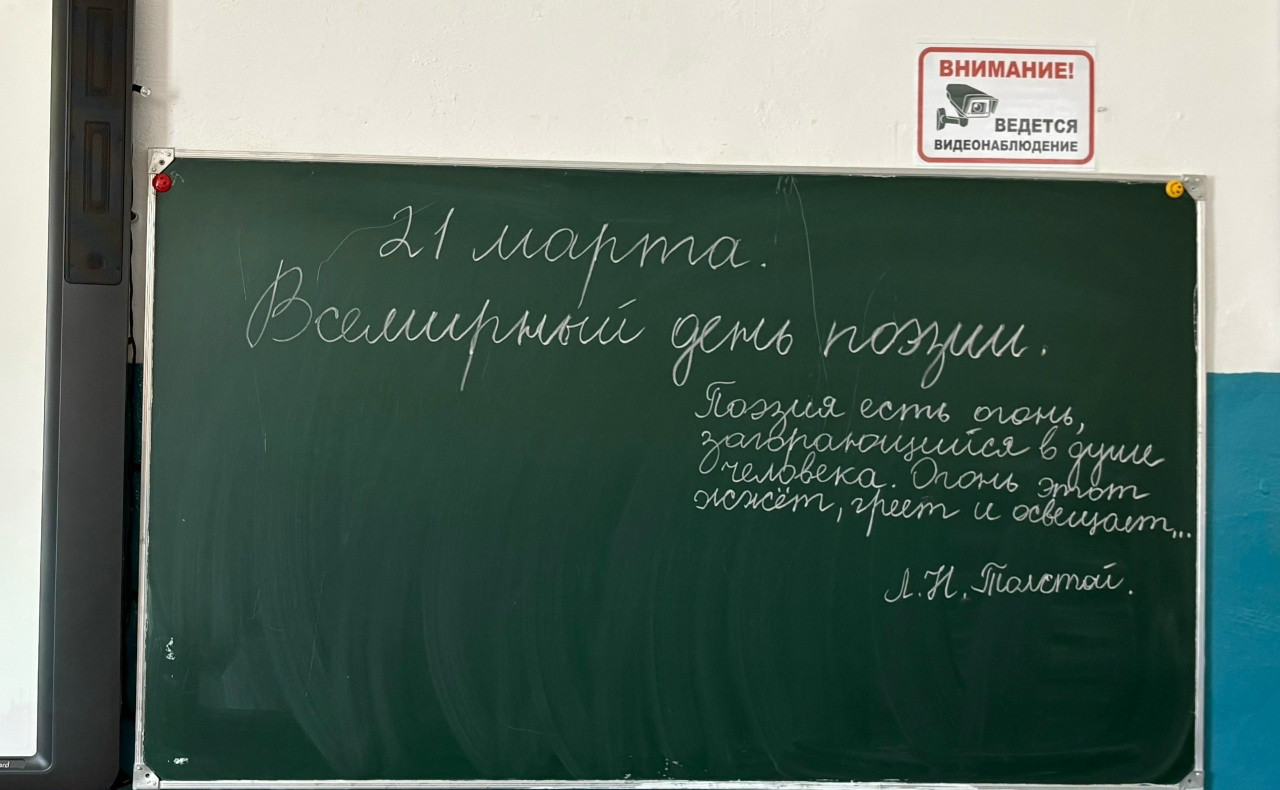 ВНИМАНИЕ!
ВЕДЕТСЯ
ВИДЕОНАБЛЮДЕНИЕ
21 марта.
Всемирный день поэзии.
Поэзия есть огонь,
загорающийся в душе
человека. Огонь этот
жжёт, греет и освещает...
Л.Н. Толстой.